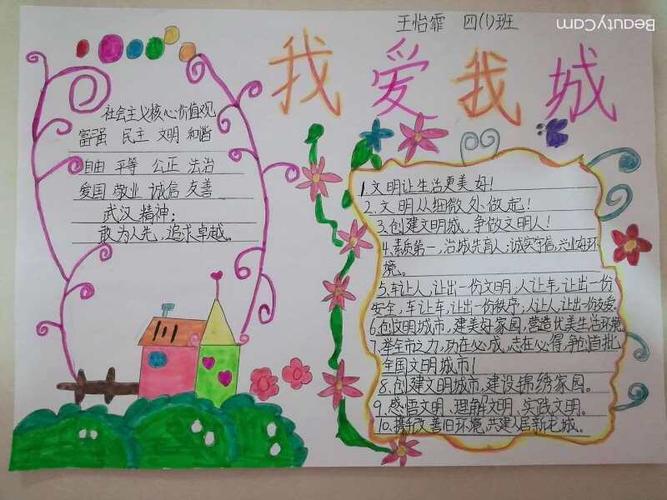 BeautyCam
王怡霏 四(1)班
我爱我城
社会主义核心价值观
富强 民主 文明 和谐
自由 平等 公正 法治
爱国 敬业 诚信 友善
武汉精神:
敢为人先,追求卓越。
1.文明让生活更美好!
2.文明从细微处做起!
3.创建文明城,争做文明人!
4.素质第一,治城先育人;诚实守信,兴业好环
境。
5.车让人,让出一份文明,人让车,让出一份
安全,车让车,让出一份秩序,人让人,让出一份友爱。
6.创文明城市,建美好家园,营造优美生活环境
7.举全市之力,功在必成,志在必得,争创首批
全国文明城市!
8.创建文明城市,建设锦绣家园。
9.感受文明,理解文明,实践文明。
10.携手改善旧环境,共建人居新花城。